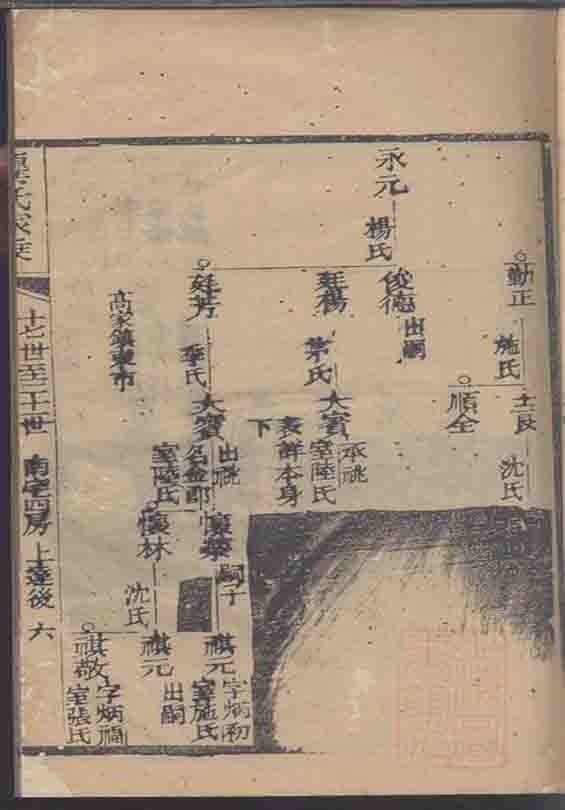 勤正
施氏
士良
沈氏
順全
永元
楊氏
俊德
出嗣
廷楊
茅氏
大賓
承祧
室陸氏
表鮮本身
下
廷芳
季氏
大賓
出祧
名金郎
室陸氏
高家鎮東市
懷榮
嗣子
祺元
字炳初
室施氏
懷林
沈氏
祺元
出嗣
祺敬
字炳福
室張氏
氏家乘
十七世至二十世
南宅四房
上蓬後
六